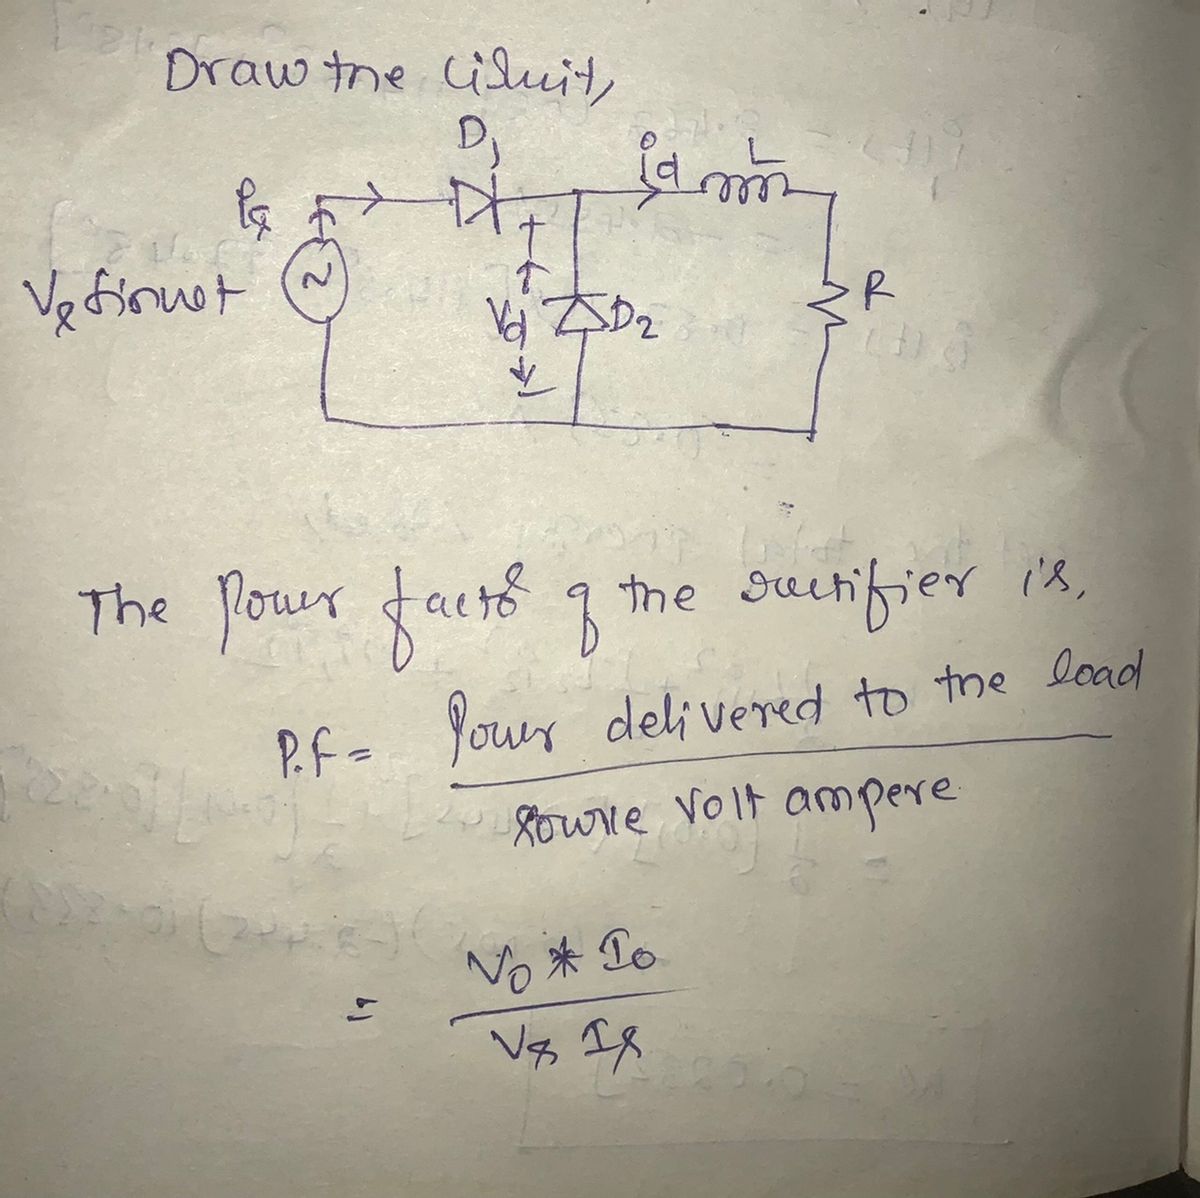 Draw the circuit,
D1
id
L
is
+
Vs sinωt
Vd
D2
R
-
The Power factor of the rectifier is,
P.f = Power delivered to the load
source volt ampere
= Vo * Io
Vs Is